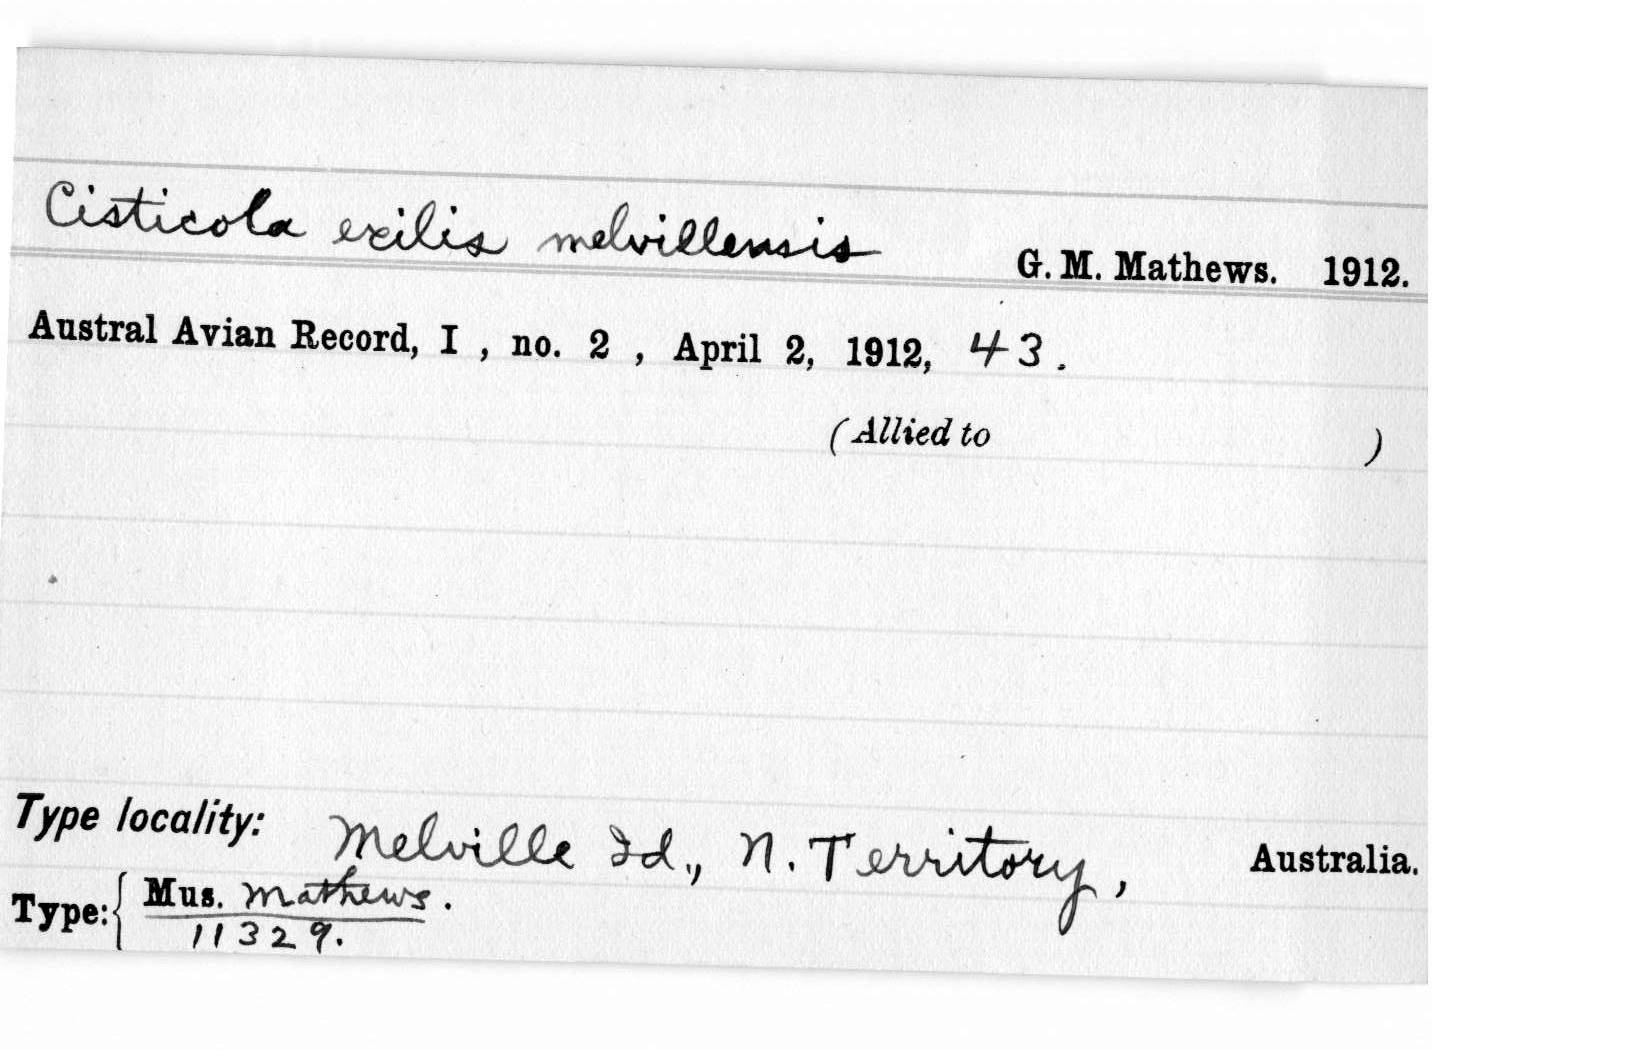 Cisticola exilis melvillensis G. M. Mathews. 1912.
Austral Avian Record, I , no. 2 , April 2, 1912, 43.
(Allied to )
Type locality: Melville Id., N. Territory, Australia.
Type: { Mus. Mathews.
11329.